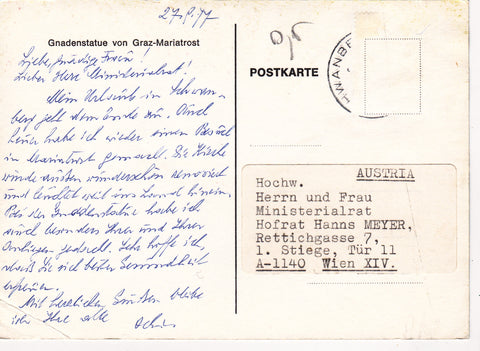 27.8.77
Gnadenstatue von Graz-Mariatrost
Liebe, gnädige Frau!
Lieber Herr Ministerialrat!
Mein Urlaub in Schwan-
berg geht dem Ende zu. Auch
heuer habe ich wieder einen Besuch
in Mariatrost gemacht. Die Kirche
wurde außen wunderschön renoviert
und leuchtet weit ins Land hinein.
Bei der Gnadenstatue habe ich
auch besonders Ihrer und Ihrer
Anliegen gedacht. Sehr hoffe ich,
daß Sie sich bester Gesundheit
erfreuen.
Mit herzlichen Grüßen bleibe
ich Ihre alte
POSTKARTE
HWANBE
AUSTRIA
Hochw.
Herrn und Frau
Ministerialrat
Hofrat Hanns MEYER,
Rettichgasse 7,
1. Stiege, Tür 11
A-1140 Wien XIV.